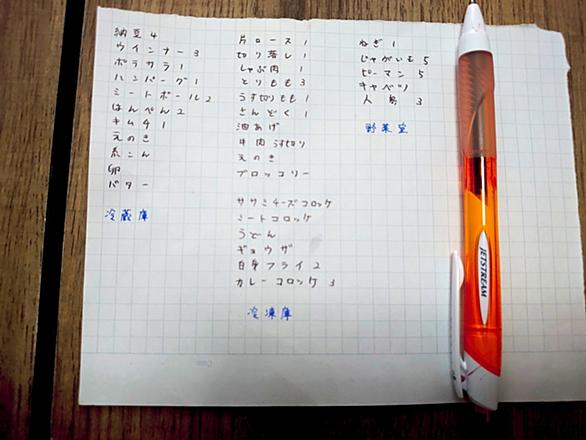 納豆 4
ウインナー 3
ポテサラ 1
ハンバーグ 1
ミートボール 2
はんぺん 2
キムチ 1
えのき
糸こん
卵
バター
冷蔵庫
片ロース 1
切り落し 1
しゃぶ肉 1
とりもも 3
うす切りもも 1
さんどく 1
油あげ
牛肉うす切り
えのき
ブロッコリー
ササミチーズコロッケ
ミートコロッケ
うどん
ギョウザ
白身フライ 2
カレーコロッケ 3
冷凍庫
ねぎ 1
じゃがいも 5
ピーマン 5
キャベツ
人参 3
野菜室
JETSTREAM